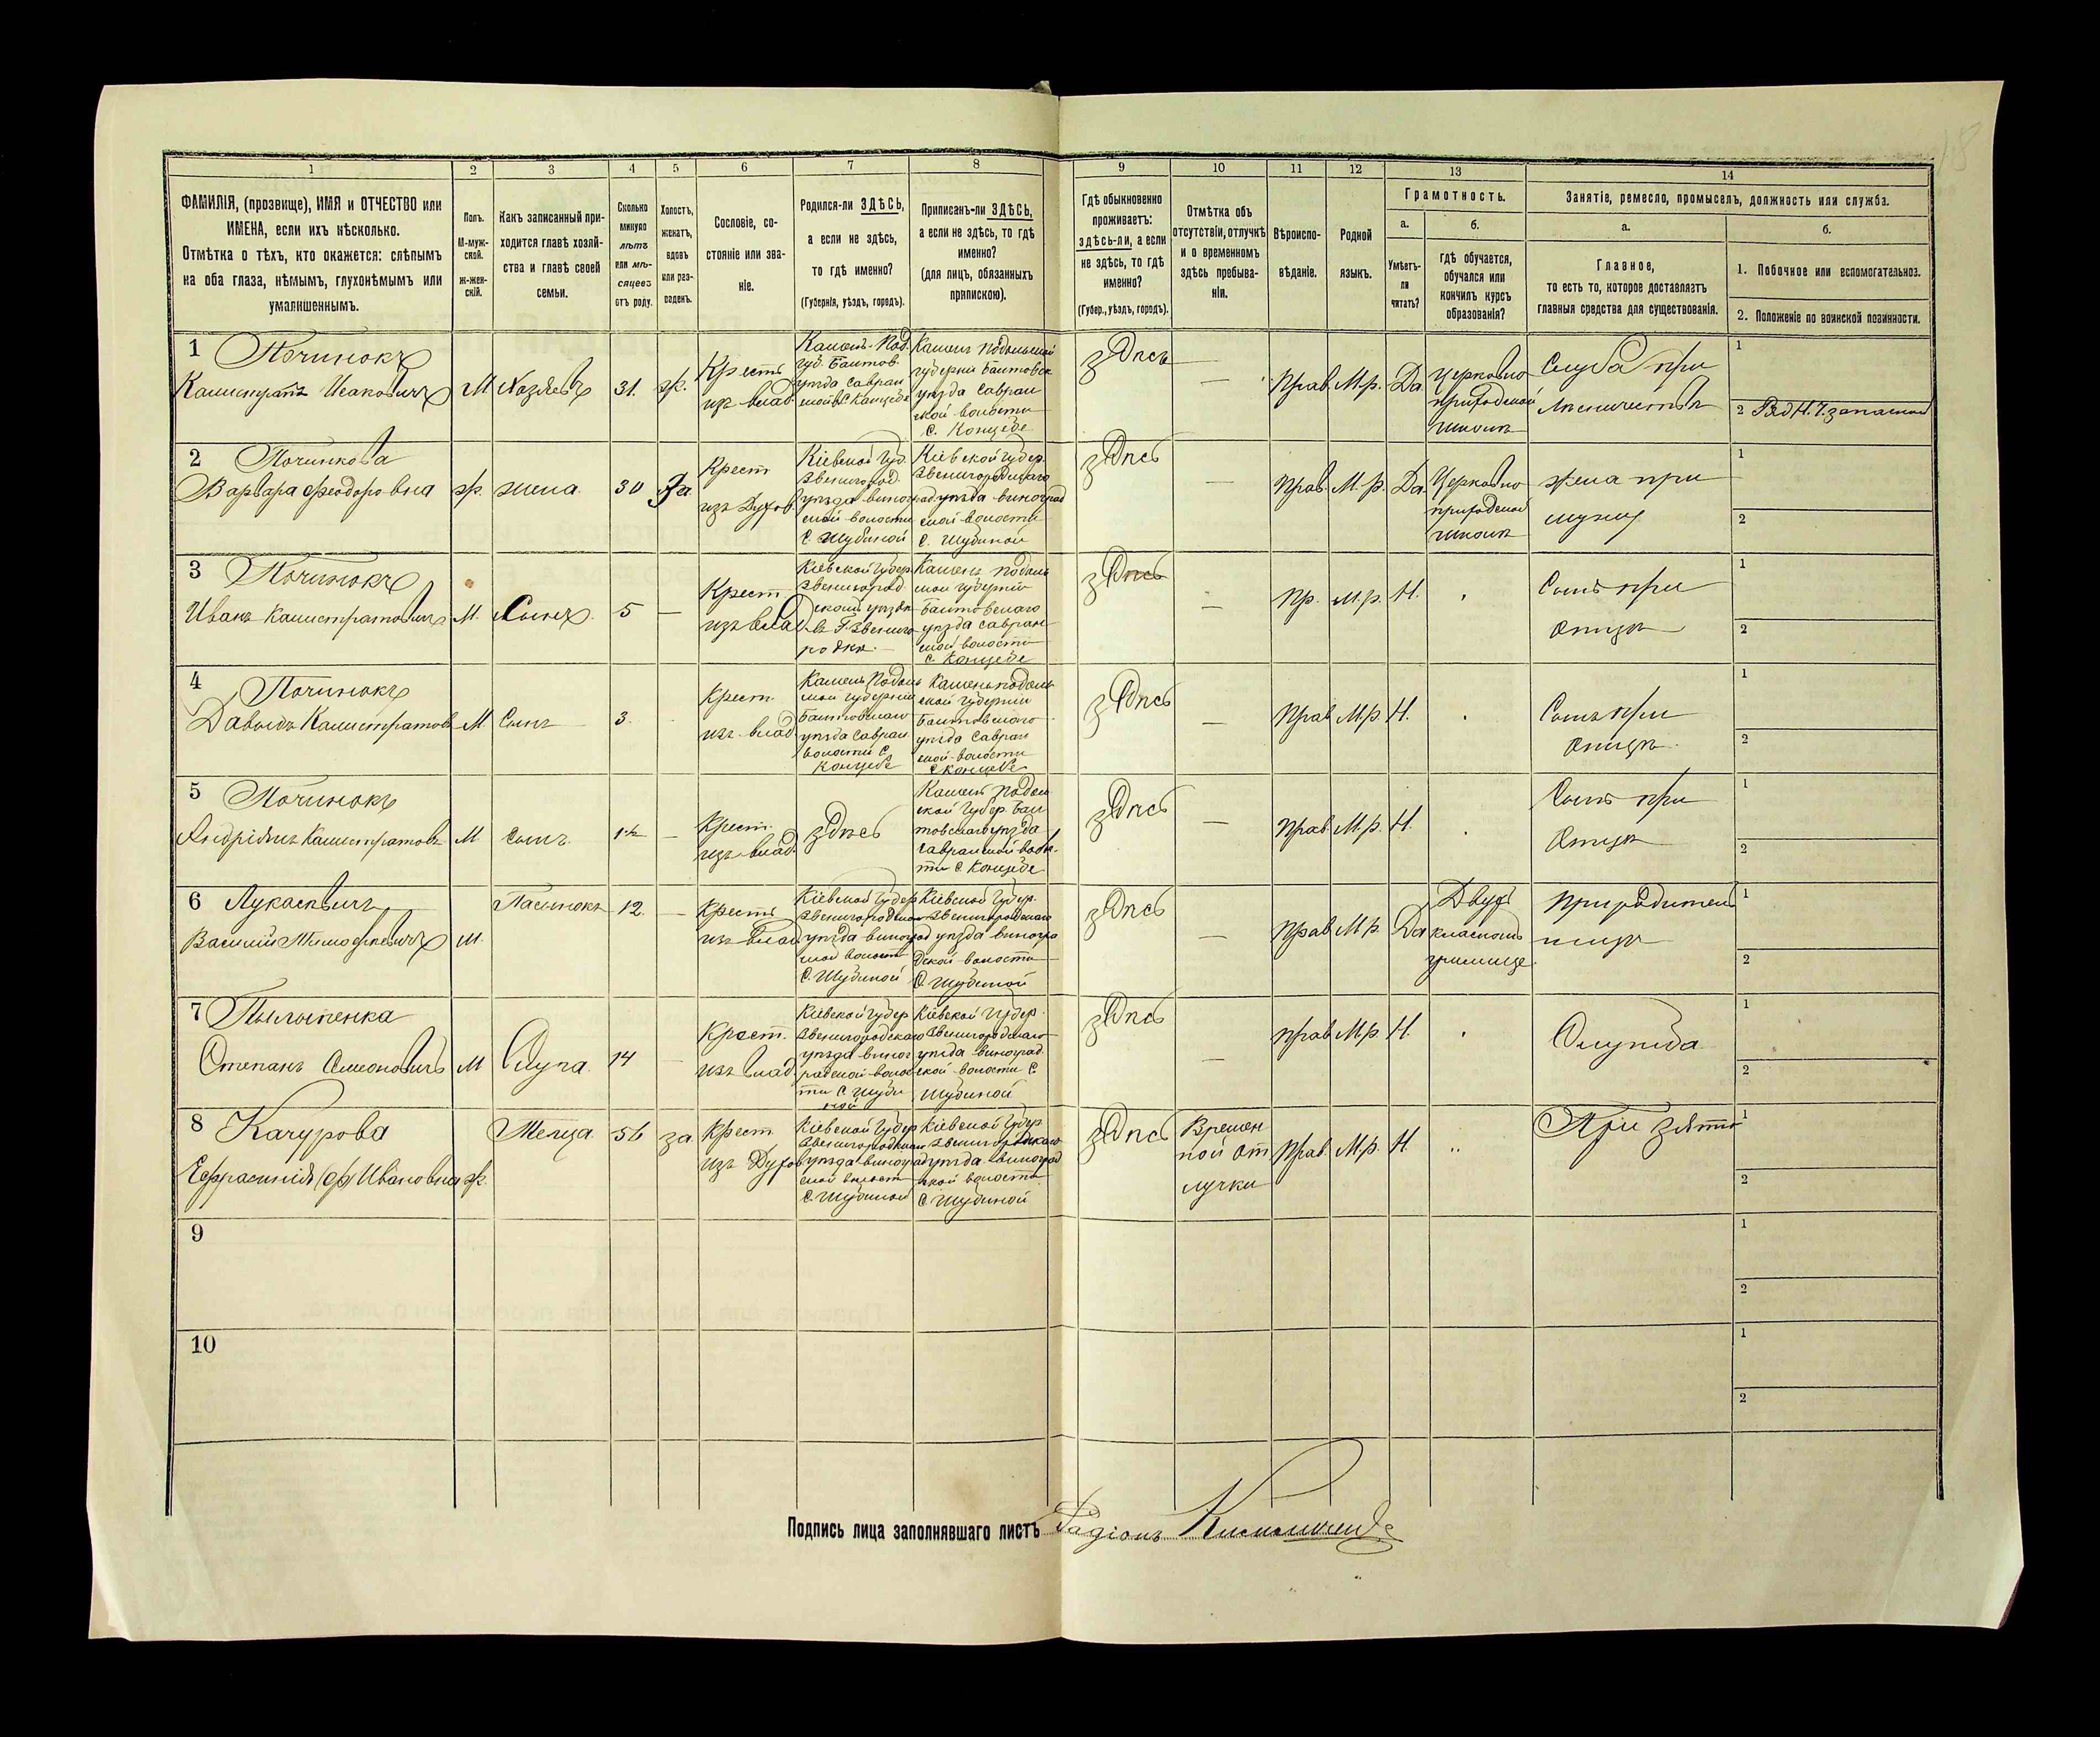 1 2 3 4 5 6 7 8 9 10 11 12 13 14
ФАМИЛІЯ, (прозвище), ИМЯ и ОТЧЕСТВО или
ИМЕНА, если ихъ нѣсколько.
Отмѣтка о тѣхъ, кто окажется: слѣпымъ
на оба глаза, нѣмымъ, глухонѣмымъ или
умалишеннымъ.
Полъ.
М-муж-
ской.
ж-жен-
скій.
Какъ записанный при-
ходится главѣ хозяй-
ства и главѣ своей
семьи.
Сколько
минуло
лѣтъ
или мѣ-
сяцевъ
отъ роду.
Холостъ,
женатъ,
вдовъ
или раз-
веденъ.
Сословіе, со-
стояніе или зва-
ніе.
Родился-ли ЗДѢСЬ,
а если не здѣсь,
то гдѣ именно?
(Губернія, уѣздъ, городъ).
Приписанъ-ли ЗДѢСЬ,
а если не здѣсь, то гдѣ
именно?
(для лицъ, обязанныхъ
припискою).
Гдѣ обыкновенно
проживаетъ:
здѣсь-ли, а если
не здѣсь, то гдѣ
именно?
(Губер., уѣздъ, городъ).
Отмѣтка объ
отсутствіи, отлучкѣ
и о временномъ
здѣсь пребыва-
ніи.
Вѣроиспо-
вѣданіе.
Родной
языкъ.
Грамотность.
а.
Умѣетъ-
ли
читать?
б.
гдѣ обучается,
обучался или
кончилъ курсъ
образованія?
Занятіе, ремесло, промыселъ, должность или служба.
а.
Главное,
то есть то, которое доставляетъ
главныя средства для существованія.
б.
1. Побочное или вспомогательное.
2. Положеніе по воинской повинности.
1 Починокъ
Калистратъ Исаковичъ
М. Хозяевъ 31. ж.
Крестъ
изъ влад.
Камень-Под.
губ. Балтов.
уѣзда Савран
С. Концебе
Камень Подольской
губерніи Балтовск
уѣзда Савран
ской волости
С. Концебе
здѣсь — Прав. М.р. Да
Церковно
приходской
школѣ
Служба при
лѣсничествѣ
1
2
2 Починкова
Варвара Феодоровна
ж. жена. 30 За
Крест
изъ Духов.
Кіевской Губ.
Звенигород.
уѣзда виног
ской волости
С. Шубиной
Кіевской Губер.
Звенигородскаго
уѣзда виноград
ской волости
С. Шубиной
здѣсь — Прав. М.р. Да
Церковно
приходской
школѣ
жена при
мужу
1
2
3 Починокъ
Иванъ Калистратовичъ
М. Сынъ. 5 —
Крест.
изъ влад
Кіевской Губер.
Звенигород
скаго уѣзда
въ Г. Звениго
родкѣ.
Камень Подоль
ской губерніи
Балтовскаго
уѣзда Савран
ской волости
С. Концебе
здѣсь — Пр. М.р. Н.
Сынъ при
отцѣ
1
2
4 Починокъ
Давыдъ Калистратовъ
М Сынъ 3.
Крест.
изъ влад
Камень Подоль
ской губерніи
Балтовскаго
уѣзда Савран
волости С.
Концебе
Каменьподоль
ской губерніи
Балтовскаго
уѣзда Савран
ской волости
С Концебе
здѣсь — Прав М.р. Н.
Сынъ при
отцѣ.
1
2
5 Починокъ
Андріянъ Калистратовъ
М сынъ. —
Крест.
изъ влад.
здѣсь
Камень Подол
ской Губер. Бал
товскаго уѣзда
Савранской волос
ти С. Концебе
здѣсь — Прав. М.р. Н.
Сынъ при
отцѣ
1
2
6 Лукасевичъ
Василий Тимофеевичъ
М. Пасынокъ 12. —
Крестъ
изъ влад
Кіевской Губер
Звенигородскаго
уѣзда виноград
ской волост
С. Шубиной
Кіевской Губер.
Звенигородскаго
уѣзда виногра
дской волости
С. Шубиной
здѣсь — Прав М.р. Да
Двухъ
класномъ
училище.
При родител
1
2
7
Степанъ Симоновичъ
М Слуга. 14 —
Крест.
изъ влад.
Кіевской Губер
Звенигородскаго
уѣзда виног
радской волос
ти С Шуби
ной
Кіевской Губер.
Звенигородскаго
уѣзда виноград.
ской волости С
Шубиной
здѣсь — Прав М.р. Н.
1
2
8 Качурова
Ефрасинія (ф) Ивановна
ж. Теща. 56 за
Крест
изъ Духов
Кіевской Губер
Звенигородскаго
уѣзда виноград
ской волост
С. Шубиной
Кіевской Губер
Звенигородскаго
уѣзда виноград
ской волости
С Шубиной
здѣсь
Времен
ной от
лучки
Прав. М.р. Н.
При зятѣ
1
2
9
1
2
10
1
2
Подпись лица заполнявшаго листъ Радіонъ